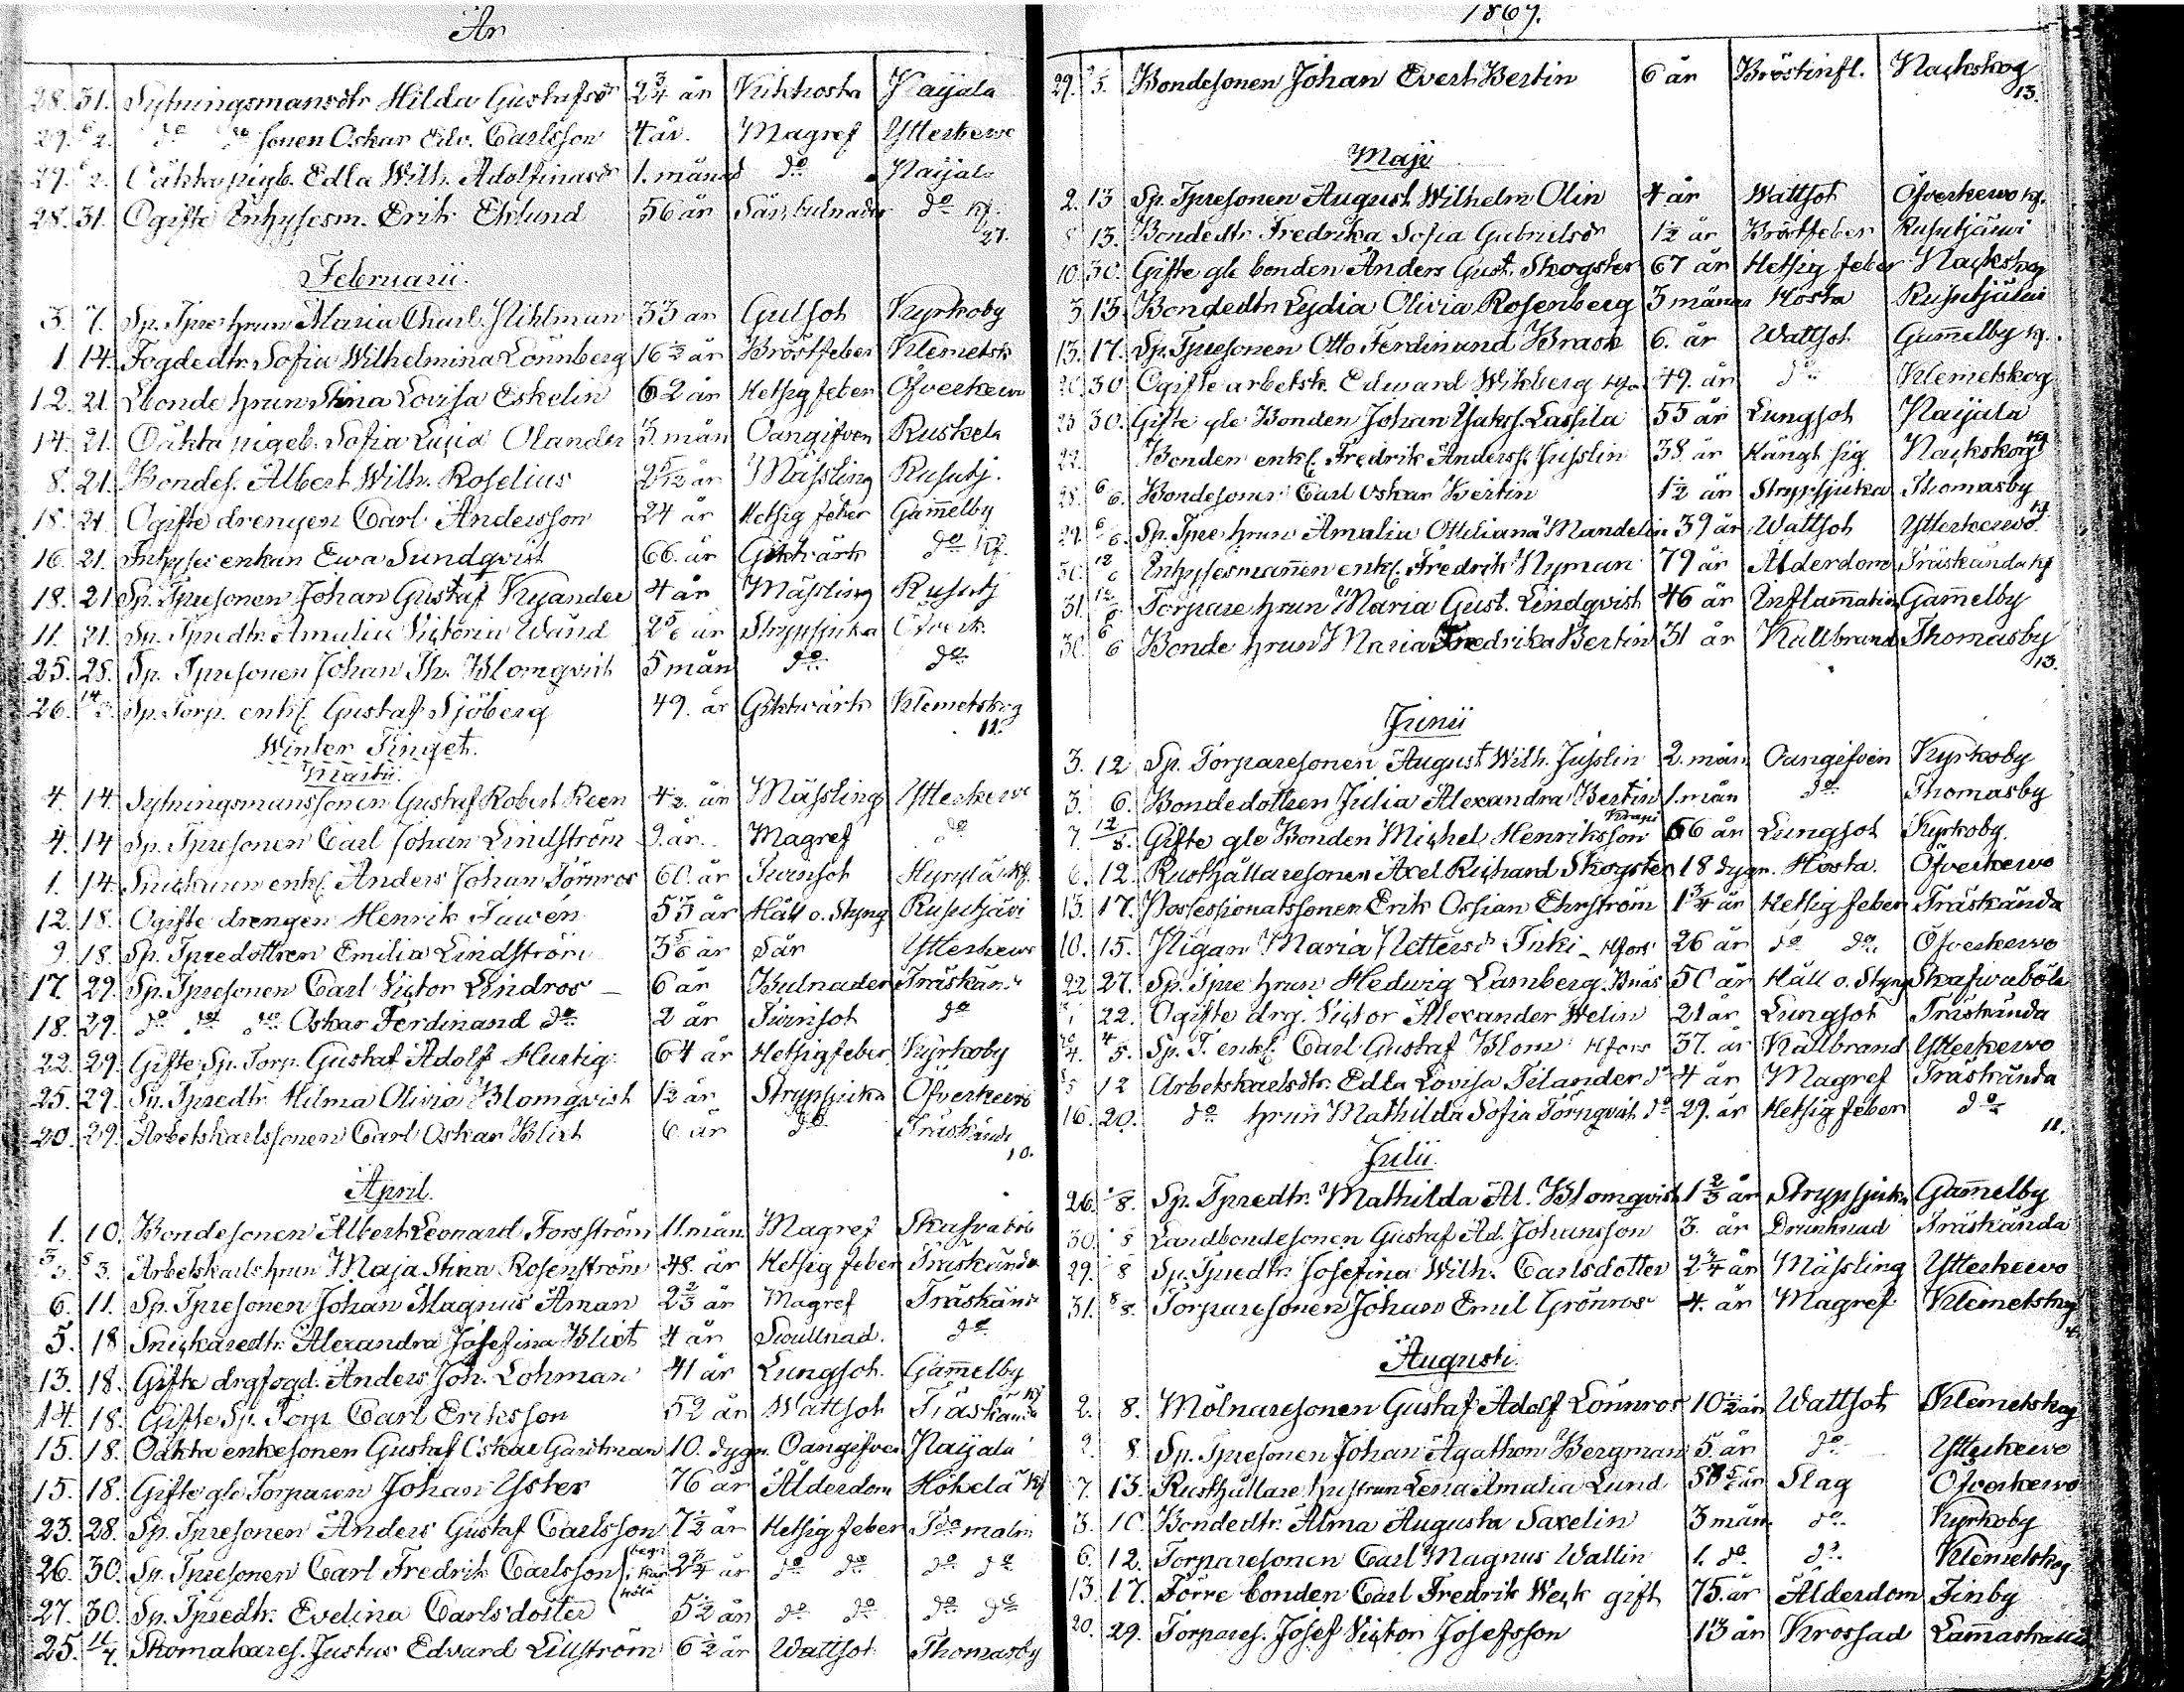 År
28. 31. Sytningsmansdtr Hilda Gustafsdr 2 3/4 år Kikhosta Paijala
29. 2. do do sonen Oskar Edv. Carlsson 4 år. Magref Ytterkervo
29. 2. Oäkta pigb. Edla Wilh. Adolfinasdr 1. månad do Paijala
28. 31. Ogifte Inhysesm. Erik Eklund 56 år Sår, bulnader do kf.
27.
Februarii.
3. 7. Sp. Tpre hrun Maria Charl. Pihlman 33 år Gulsot Kyrkoby
1. 14. Fogdedtr. Sofia Wilhelmina Lönnberg 16 1/2 år Bröstfeber Klemetsk
12. 21. Lbonde hrun Stina Lovisa Eskelin 62 år Hetsig feber Öfverkervo
14. 21. Oäkta pigeb. Sofia Lusia Olander 3. mån Oangifven Ruskela
8. 21. Bondes. Albert Wilh. Roselius 2 5/12 år Mässling Rusutj.
18. 21. Ogifte drengen Carl Andersson 24 år Hetsig feber Gam̄elby
16. 21. Inhyses enkan Ewa Sundqvist 66. år Giktvärk do kf.
18. 21. Sp. Tpresonen Johan Gustaf Kyander 4 år Mässling Rusutj
11. 21. Sp. Tpredtr. Amalia Victoria Wänd 2 5/6 år Strypsjuka Öfverk.
25. 28. Sp. Tpresonen Johan Th. Blomqvist 5 mån do do
26. 14/3. Sp. Torp. enkl. Gustaf Sjöberg 49. år Giktvärk Klemetskog
11.
Winter Tinget.
Martii.
4. 14. Sytningsmanssonen Gustaf Robert Reen 4 1/2. år Mässling Ytterkervo
4. 14 Sp. Tpresonen Carl Johan Lindström 9. år. Magref do
1. 14 Snickaren enkl. Anders Johan Törnros 60. år Twinsot Hyrylä kf.
12. 18. Ogifte drengen Henrik Tawén 53 år Håll o. Styng Rusutjävi
9. 18. Sp. Tpredottren Emilia Lindström 3 5/6 år Sår Ytterkervo
17. 29. Sp. Tpresonen Carl Victor Lindros 6 år Bulnader Träskända
18. 29. do do do Oskar Ferdinand do 2 år Twinsot do
22. 29. Gifte Sp. Torp. Gustaf Adolf Hurtig 64 år Hetsig feber Kyrkoby
25. 29. Sp. Tpredtr. Hilma Olivia Blomqvist 1 1/2 år Strypsjuka Öfverkervo
20. 29. Arbetskarlssonen Carl Oskar Blixt 6. år do Träskända
10.
April.
1. 10. Bondesonen Albert Leonard Forsström 11. mån. Magref Skafvaböle
3. Arbetskarls hrun Maja Stina Rosenström 48. år Hetsig feber Träskända
6. 11. Sp. Tpresonen Johan Magnus Åman 2 2/3 år Magref Träskända
5. 18 Snickaredtr. Alexandra Josefina Blixt 4 år Swullnad. do
13. 18. Gifte drgfogd. Anders Joh. Lohman 41 år Lungsot. Gam̄elby
14. 18. Gifte Sp. Torp. Carl Eriksson 52 år Wattsot Träskända kf
15. 18. Oäkta enkesonen Gustaf Oskar Gardtman 10. dygn. Oangifven Paijala
15. 18. Gifte gle Torparen Johan Yster 76 år Ålderdom Hökelä kf
23. 28. Sp. Tpresonen Anders Gustaf Carlsson 7 1/2 år Hetsig feber malm
26. 30. Sp. Tpresonen Carl Fredrik Carlsson 2 3/4 år do do do do
27. 30. Sp. Tpredtr. Evelina Carlsdotter 5 1/2 år do do do do
25. Skomakares. Justus Edvard Lillström 6 1/2 år Wattsot Thomasby
1869.
29. 5. Bondesonen Johan Evert Bertin 6 år Bröstinfl. Nackskog
13.
Maji
2. 13 Sp. Tpresonen August Wilhelm Olin 4 år Wattsot Öfverkervo kf.
8 13. Bondedtr. Fredrika Sofia Gabrielsdr 1 1/2 år Bröstfeber Rusutjärvi
10. 30. Gifte gle bonden Anders Gust. Skogster 67 år Hetsig feber Nackskog
3 13. Bondedtr. Lydia Olivia Rosenberg 3 månar Hosta Rusutjärvi
13. 17. Sp. Tpresonen Otto Ferdinand Brask 6. år Wattsot Gam̄elby kf.
20. 30 Ogifte arbetsk. Edward Wikberg Hfors 49. år do Klemetskog
23 30. Gifte gle Bonden Johan Jakobs. Lassila 55 år Lungsot Paijala
22. Bonden enkl. Fredrik Anderss. Jusslin 38. år Hängt sig Nackskog kf
28. 6/6. Bondesonen Carl Oskar Bertin 1 1/2 år Strypsjuka Thomasby
29. 6/6. Sp. Tpre hrun Amalia Ottiliana Mandelin 39 år Wattsot Ytterkervo kf
30. 12/6 Inhysesmannen enkl. Fredrik Nyman 79 år Ålderdom Träskända kf
31. 12/6. Torpare hrun Maria Gust. Lindqvist 46 år Inflam̄ation Gam̄elby
30. 6/6 Bonde hrun Maria Fredrika Bertin 31 år Kallbrand Thomasby
13.
Junii
3. 12 Sp. Torparesonen August Wilh. Jusslin 2. mån Oangifven Kyrkoby
3 6. Bondedottren Julia Alexandra Bertin 1. mån do Thomasby
7. 12/8. Gifte gle Bonden Michel Henriksson Krapi 66 år Lungsot Kyrkoby.
6. 12. Rusthållaresonen Axel Richard Skogster 18 dygn. Hosta. Öfverkervo
13. 17. Possessionatssonen Erik Ossian Ehrström 1 3/4 år Hetsig feber Träskända
10. 15. Pigan Maria Pettersdr Inki Hfors 26 år do do Öfverkervo
22 27. Sp. Tpre hrun Hedwig Lamberg. Bnäs 50 år Håll o. Styng Skafwaböle
22. Ogifte drg. Victor Alexander Helin 21 år Lungsot Träskända
4/5. Sp. T. enkl. Carl Gustaf Blom Hfors 37. år Kallbrand Ytterkervo
12 Arbetskarlsdtr. Edla Lovisa Tilander do 4 år Magref Träskända
16. 20. do hrun Mathilda Sofia Törnqvist do 29. år Hetsig feber do
11.
Julii.
26. 8. Sp. Tpredtr. Mathilda Al. Blomqvist 1 2/3 år Strypsjuka Gam̄elby
30. 8 Landbondesonen Gustaf Ad. Johansson 3. år Drunknad Träskända
29. 8 Sp. Tpredtr. Josefina Wilh. Carlsdotter 2 3/4 år Mässling Ytterkervo
31. 8/8. Torparesonen Johan Emil Grönros 4. år Magref Klemetskog
4.
Augusti.
2. 8. Mölnaresonen Gustaf Adolf Lönnros 10 1/2 år Wattsot Klemetskog
2. 8 Sp. Tpresonen Johan Agathon Bergman 5. år do Ytterkervo
7. 13. Rusthållare hustrun Lena Amalia Lund år Slag Öfverkervo
3. 10. Bondedtr. Alma Augusta Saxelin 3 mån. do Kyrkoby
6. 12. Torparesonen Carl Magnus Wallin 1. do do Klemetskog
13. 17. Förre bonden Carl Fredrik Weck gift 75. år Ålderdom Finby
20. 29. Torpares. Josef Victor Josefsson 13 år Krossad Lam̄askalla